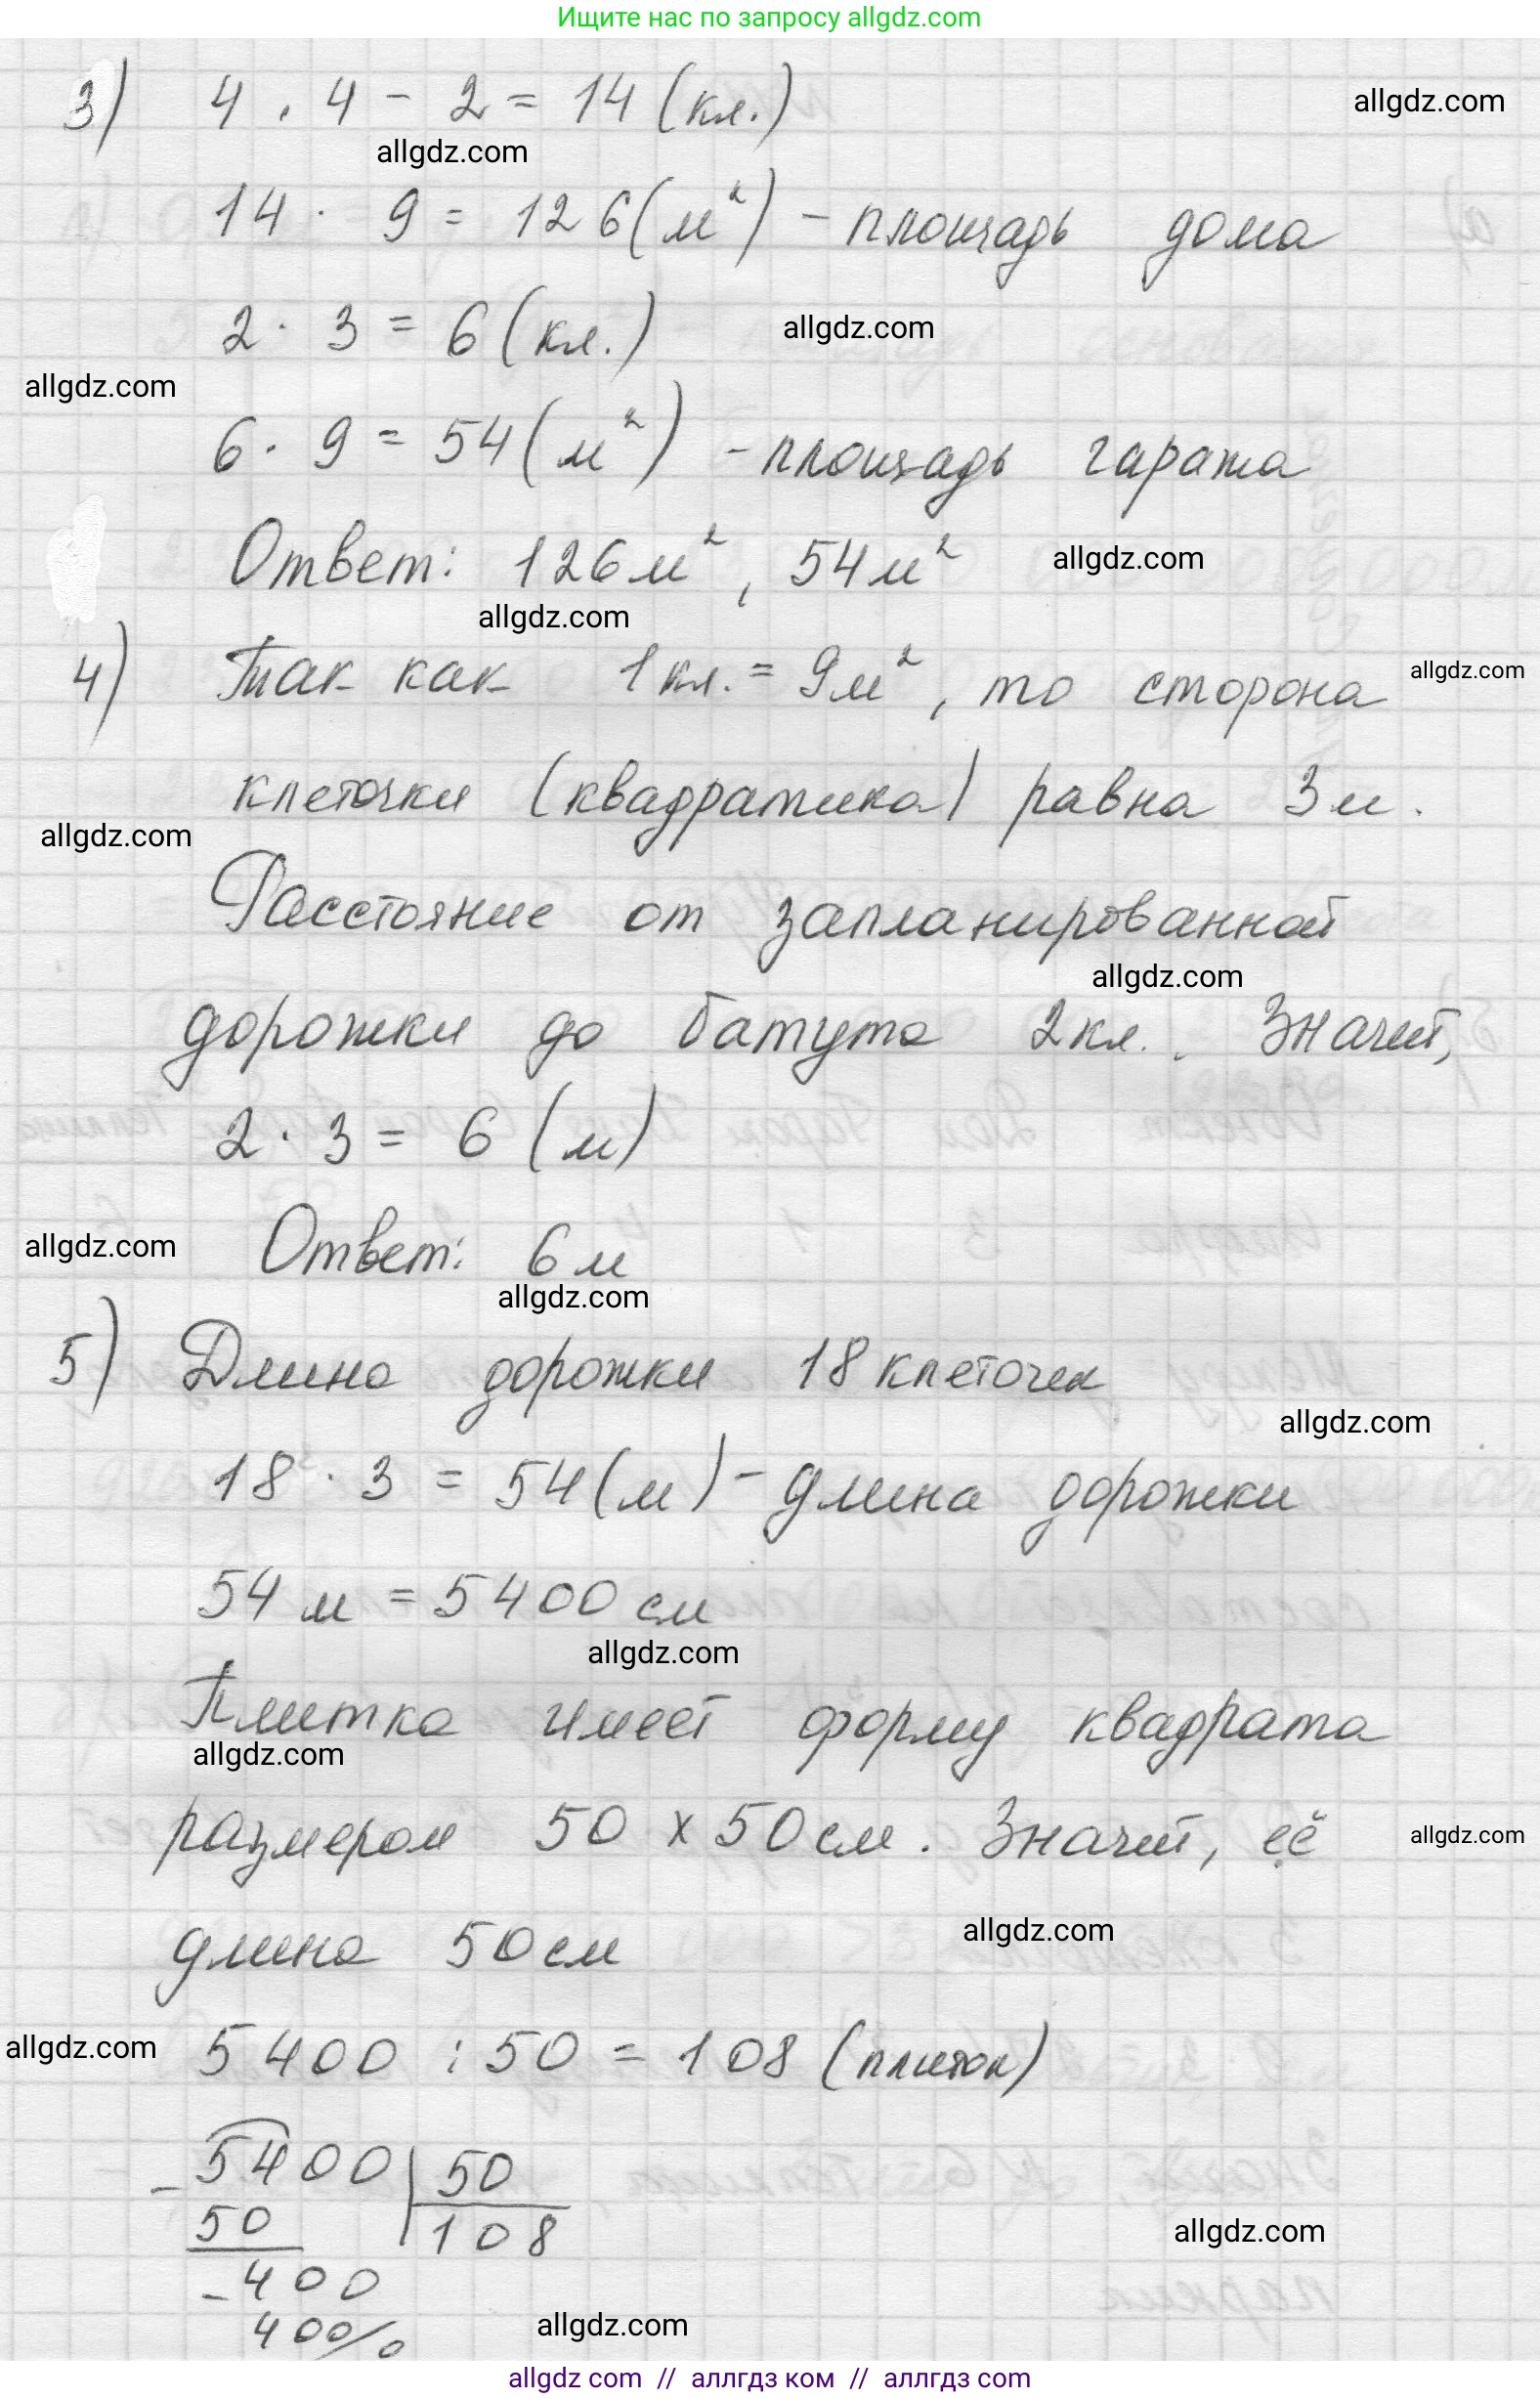 Ищите нас по запросу allgdz.com
3) 4 · 4 - 2 = 14 (кл.)
allgdz.com
allgdz.com
14 · 9 = 126 (м²) - площадь дома
2 · 3 = 6 (кл.)
allgdz.com
allgdz.com
6 · 9 = 54 (м²) - площадь гаража
Ответ: 126 м², 54 м²
allgdz.com
allgdz.com
4) Так как 1 кл. = 9 м², то сторона
allgdz.com
клеточки (квадратика) равна 3 м.
allgdz.com
Расстояние от запланированной
allgdz.com
дорожки до батута 2 кл. . Значит,
2 · 3 = 6 (м)
allgdz.com
Ответ: 6 м
allgdz.com
5) Длина дорожки 18 клеточек
allgdz.com
18 · 3 = 54 (м) - длина дорожки
54 м = 5400 см
allgdz.com
Плитка имеет форму квадрата
allgdz.com
размером 50 х 50 см. Значит, её
allgdz.com
длина 50 см
allgdz.com
allgdz.com
5400 : 50 = 108 (плиток)
- 5400 | 50
50 108
allgdz.com
- 400
400
allgdz.com
0
allgdz.com // аллгдз ком // аллгдз.com